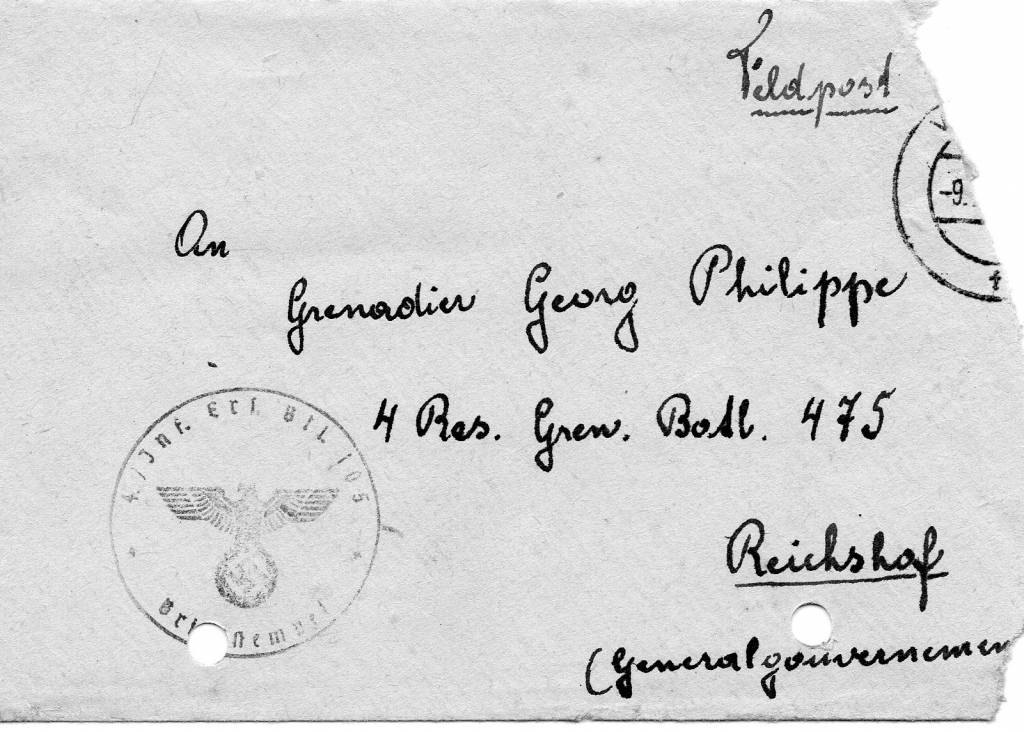 Feldpost
-9.
An
Grenadier Georg Philippe
4 Res. Gren. Batl. 475
4./Inf. Ers. Btl. 105
Reichshof
(Generalgouvernemen